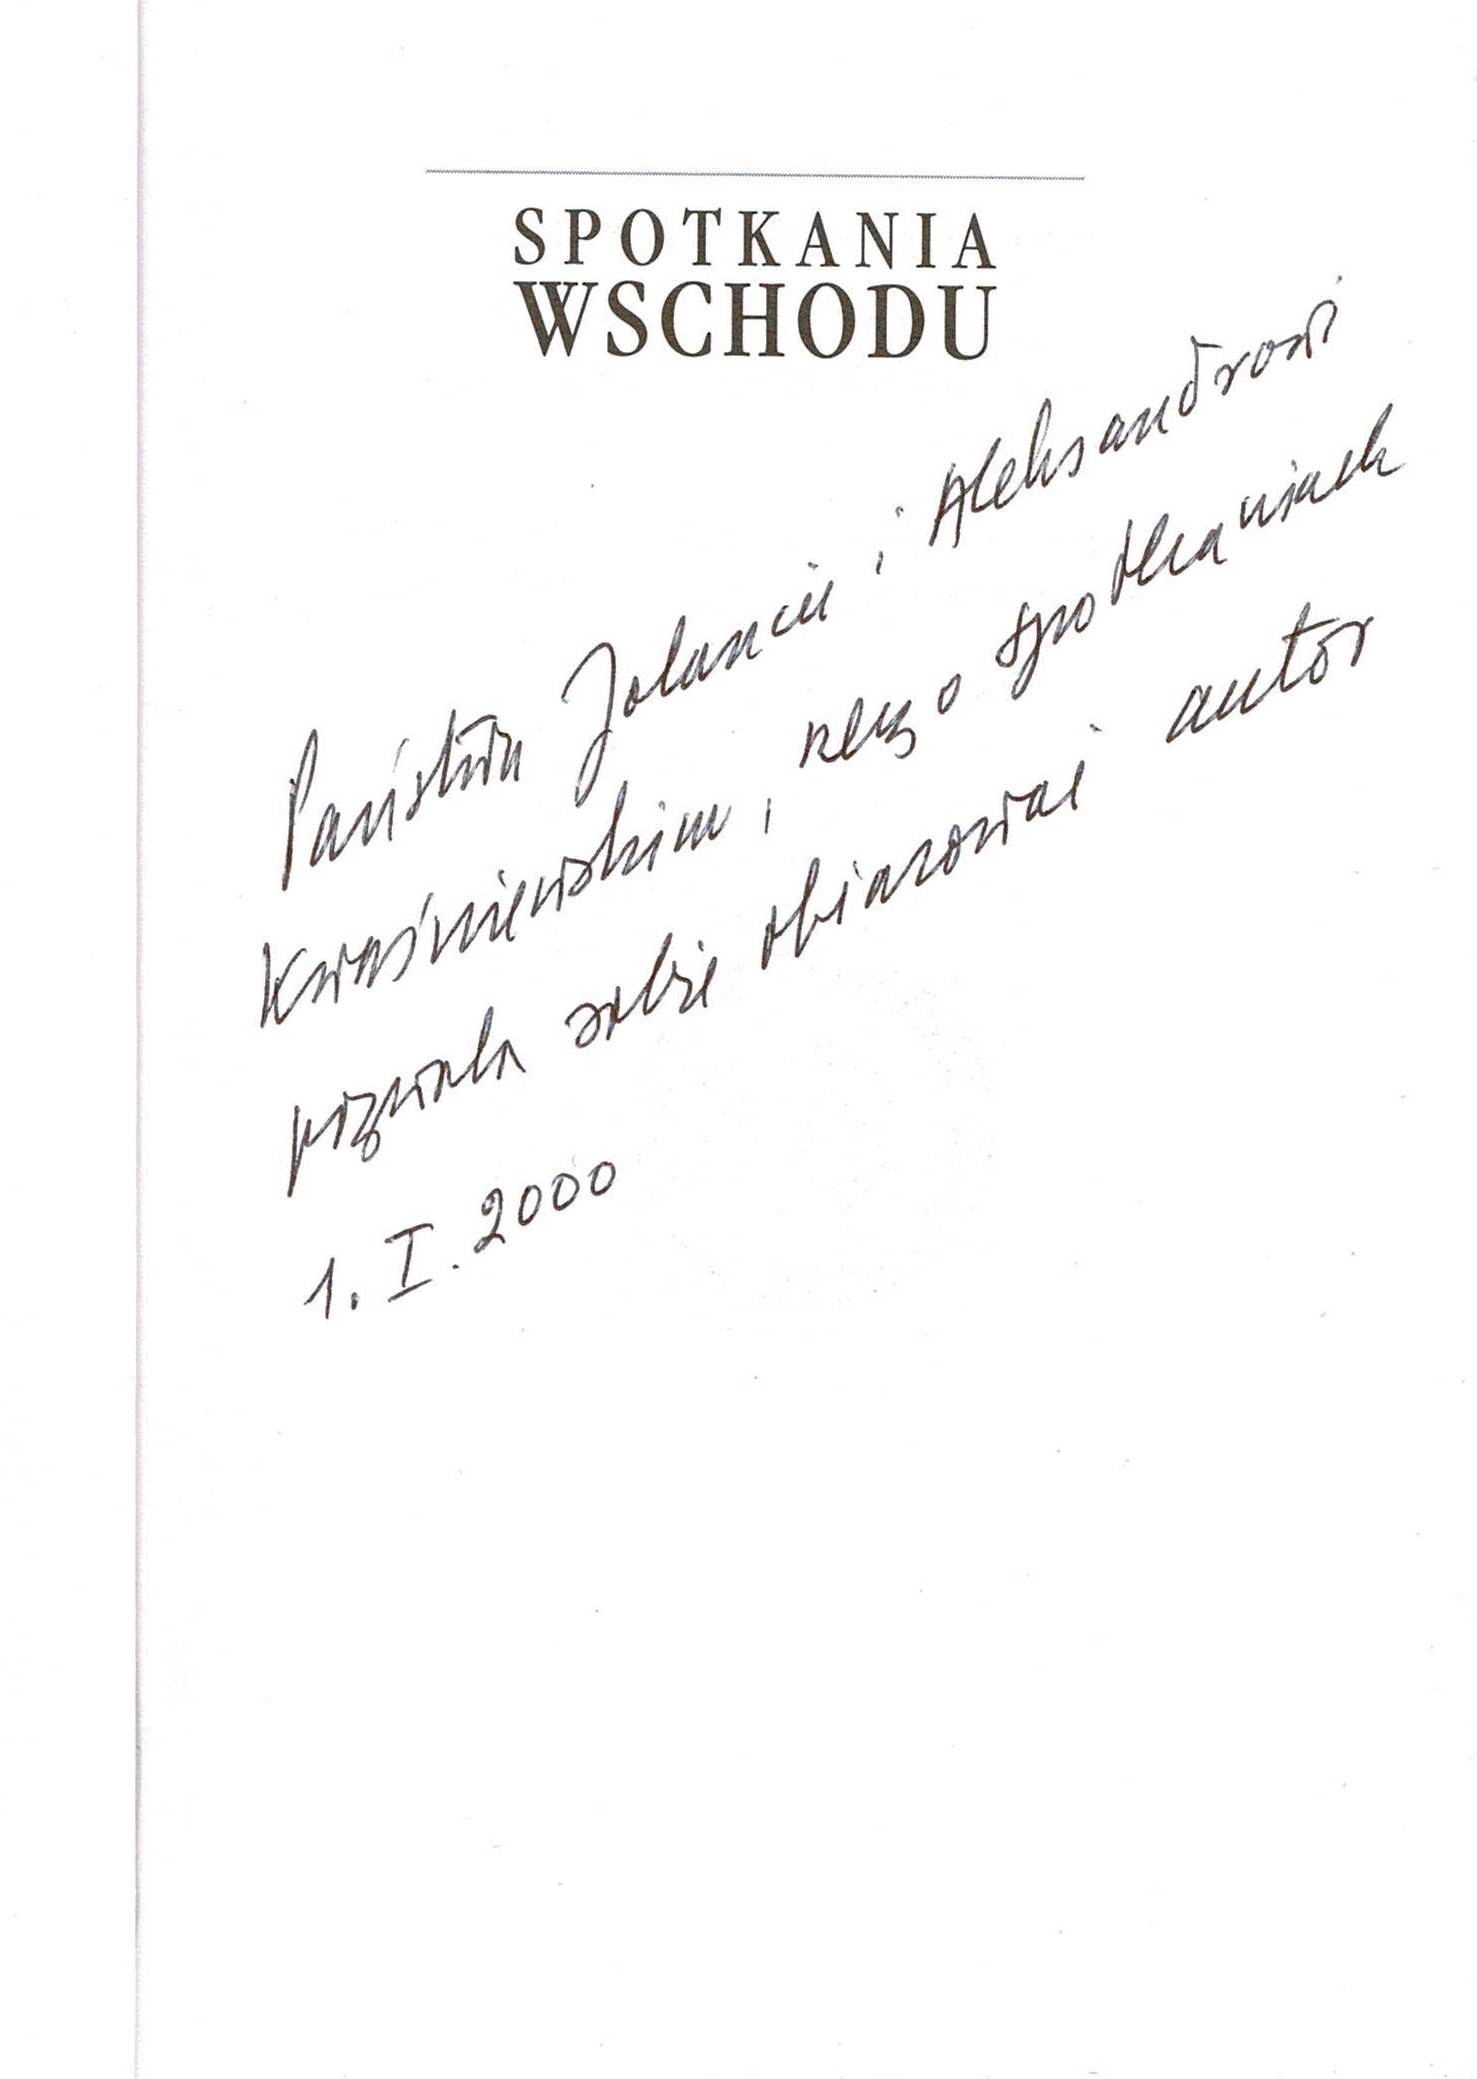 SPOTKANIA
WSCHODU
Państwu Jolancie i Aleksandrowi
Kwaśniewskim, o spotkaniach
pozwala sobie ofiarować autor
1. I. 2000